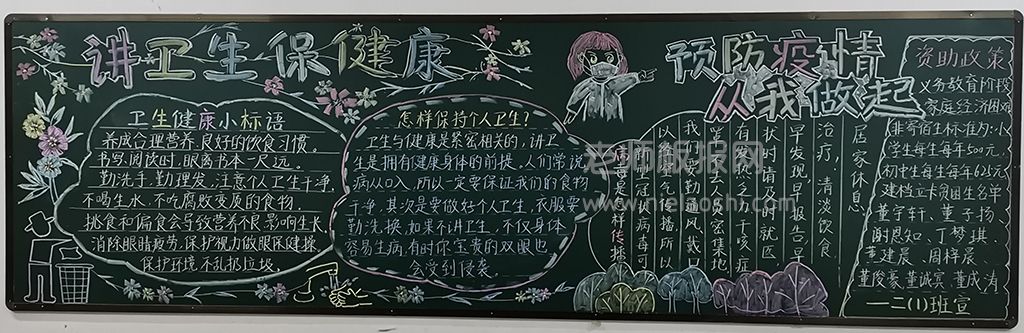 讲卫生保健康
卫生健康小标语
养成合理营养、良好的饮食习惯。
书写、阅读时,眼离书本一尺远。
勤洗手,勤理发,注意个人卫生干净,
不喝生水,不吃腐败变质的食物,
挑食和偏食会导致营养不良,影响生长,
消除眼睛疲劳,保护视力做眼保健操,
保护环境,不乱扔垃圾。
怎样保持个人卫生?
卫生与健康是紧密相关的,讲卫
生是拥有健康身体的前提,人们常说
病从口入,所以一定要保证我们的食物
干净,其次是要做好个人卫生,衣服要
勤洗换,如果不讲卫生,不仅身体
容易生病,有时你宝贵的双眼也
会受到侵袭。
预防疫情
从我做起
病毒是怎样传播
新冠状病毒可
以经空气传播,所以
我们要勤通风戴口
罩,少去人员密集地
有发热乏力、干咳症
状时请及时就医
早发现早报告早
治疗,清淡饮食
居家休息。
资助政策
义务教育阶段
家庭经济困难
非寄宿生标准为:小
学生每生每年500元,
初中生每生每年625元
建档立卡贫困生名单
董宇轩、董子扬、
谢恩知、丁梦琪、
董建晨、周梓宸、
董俊豪、董诚宾、董成涛
一二(1)班宣
老师板报网。
www.heibanshi.com